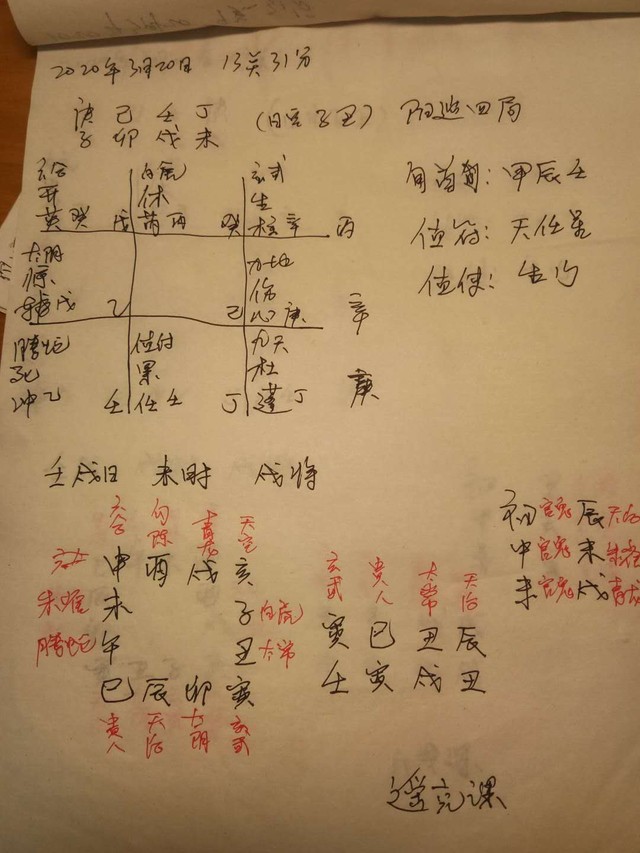 2020年3月20日 13关31分
庚 己 壬 丁
子 卯 戌 未
(旬空子丑)
阳遁四局
旬首: 甲辰壬
值符: 天任星
值使: 生门
六合 白虎 玄武
开 休 生
英癸 戊 芮丙 癸 柱辛 丙
太阴 九地
惊 伤
辅戊 乙 己 心庚 辛
腾蛇 值符 九天
死 景 杜
冲乙 壬 任壬 丁 蓬丁 庚
壬戌日 未时 戌将
六合 勾陈 青龙 天空
申 酉 戌 亥
朱雀 未 子 白虎
腾蛇 午 丑 太常
巳 辰 卯 寅
贵人 天后 太阴 玄武
玄武 贵人 太常 天后
寅 巳 丑 辰
壬 寅 戌 丑
初 官鬼 辰 天后
中 官鬼 未 朱雀
末 官鬼 戌 青龙
遥克课